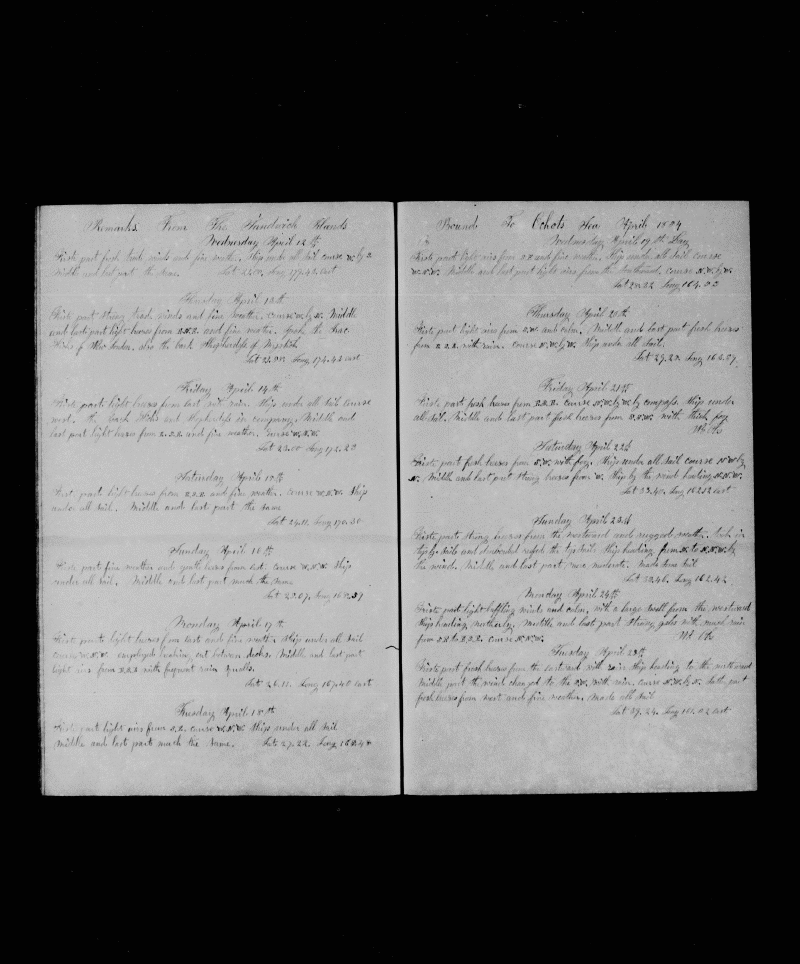 Remarks From The Sandwich Islands
Wednesday April 12th
First part fresh trade winds and fine weather. Ship under all sail course W. by S
Middle and last part the same. Lat 22.00. Long 177.42. East
Thursday April 13th
First part strong trade winds and fine weather. Course W. by N. Middle
and last part light breezes from E.N.E. and fine weather. Spoke the Isac
of New London. also the bark Shepherdess of Mystick
Lat 23.00 Long 174.42 East
Friday April 14th
First part light breezes from East with rain. Ship under all sail course
west. the bark and Shepherdess in company. Middle and
last part light breezes from E.S.E. and fine weather. Course W.N.W.
Lat 23. Long 172.20
Saturday April 15th
First part light breezes from E.S.E. and fine weather. Course W.N.W. Ship
under all sail. Middle and last part the same
Lat 24.11. Long 170.30
Sunday April 16th
First part fine weather and gentle breezes from East. Course W.N.W. Ship
under all sail. Middle and last part much the same
Lat 25.07. Long 16
Monday April 17th
First part light breezes from East and fine weather. Ship under all sail
Course W.N.W. employed breaking out between decks. Middle and last part
light airs from E.S.E. with frequent rain squalls.
Lat 26.11. Long 167.40 East
Tuesday April 18th
First part light airs from S.E. Course W.N.W. Ship under all sail
Middle and last part much the same. Lat 27.22. Long 165.48
Bound To Ochots Sea April 1854
Wednesday April 19th Day
First part light airs from S.E and fine weather. Ship under all sail course
W.N.W. Middle and last part light airs from the Southward. Course N.W. by W.
Lat 28.22 Long 164.03
Thursday April 20th
First part light airs from S.W. and calm. Middle and last part fresh breezes
from E.S.E. with rain. Course N.W. by W. Ship under all sail.
Lat 29.22. Long 162.07.
Friday April 21st
First part fresh breezes from E.S.E. Course N.W. by W. by compass. Ship under
all sail. Middle and last part fresh breezes from with thick fog
No Obs
Saturday April 22d
First part fresh breezes from S.W. with fog. Ship under all sail course N.W. by
N. Middle and last part strong breezes from W. Ship by the wind heading N.N.W.
Lat 33.40. Long 162.12 East
Sunday April 23d
First part strong breezes from the westward and rugged weather. took in
top gl. sails and double reefed the topsails. Ship heading from N. to N.N.W. by
the wind. Middle and last part more moderate. Made more sail
Lat 35.46. Long 162.42
Monday April 24th
First part light baffling winds and calm, with a large swell from the westward
Ship heading northerly. Middle and last part strong gales with much rain
from S.E to E.S.E. Course N.N.W. No Obs
Tuesday April 25th
First part fresh breezes from the East and with rain Ship heading to the northward
Middle part the wind changed to the S.W. with rain. Course N.W. by N. Last part
fresh breezes from west and fine weather. Made all sail
Lat 39.24. Long 161.02 East